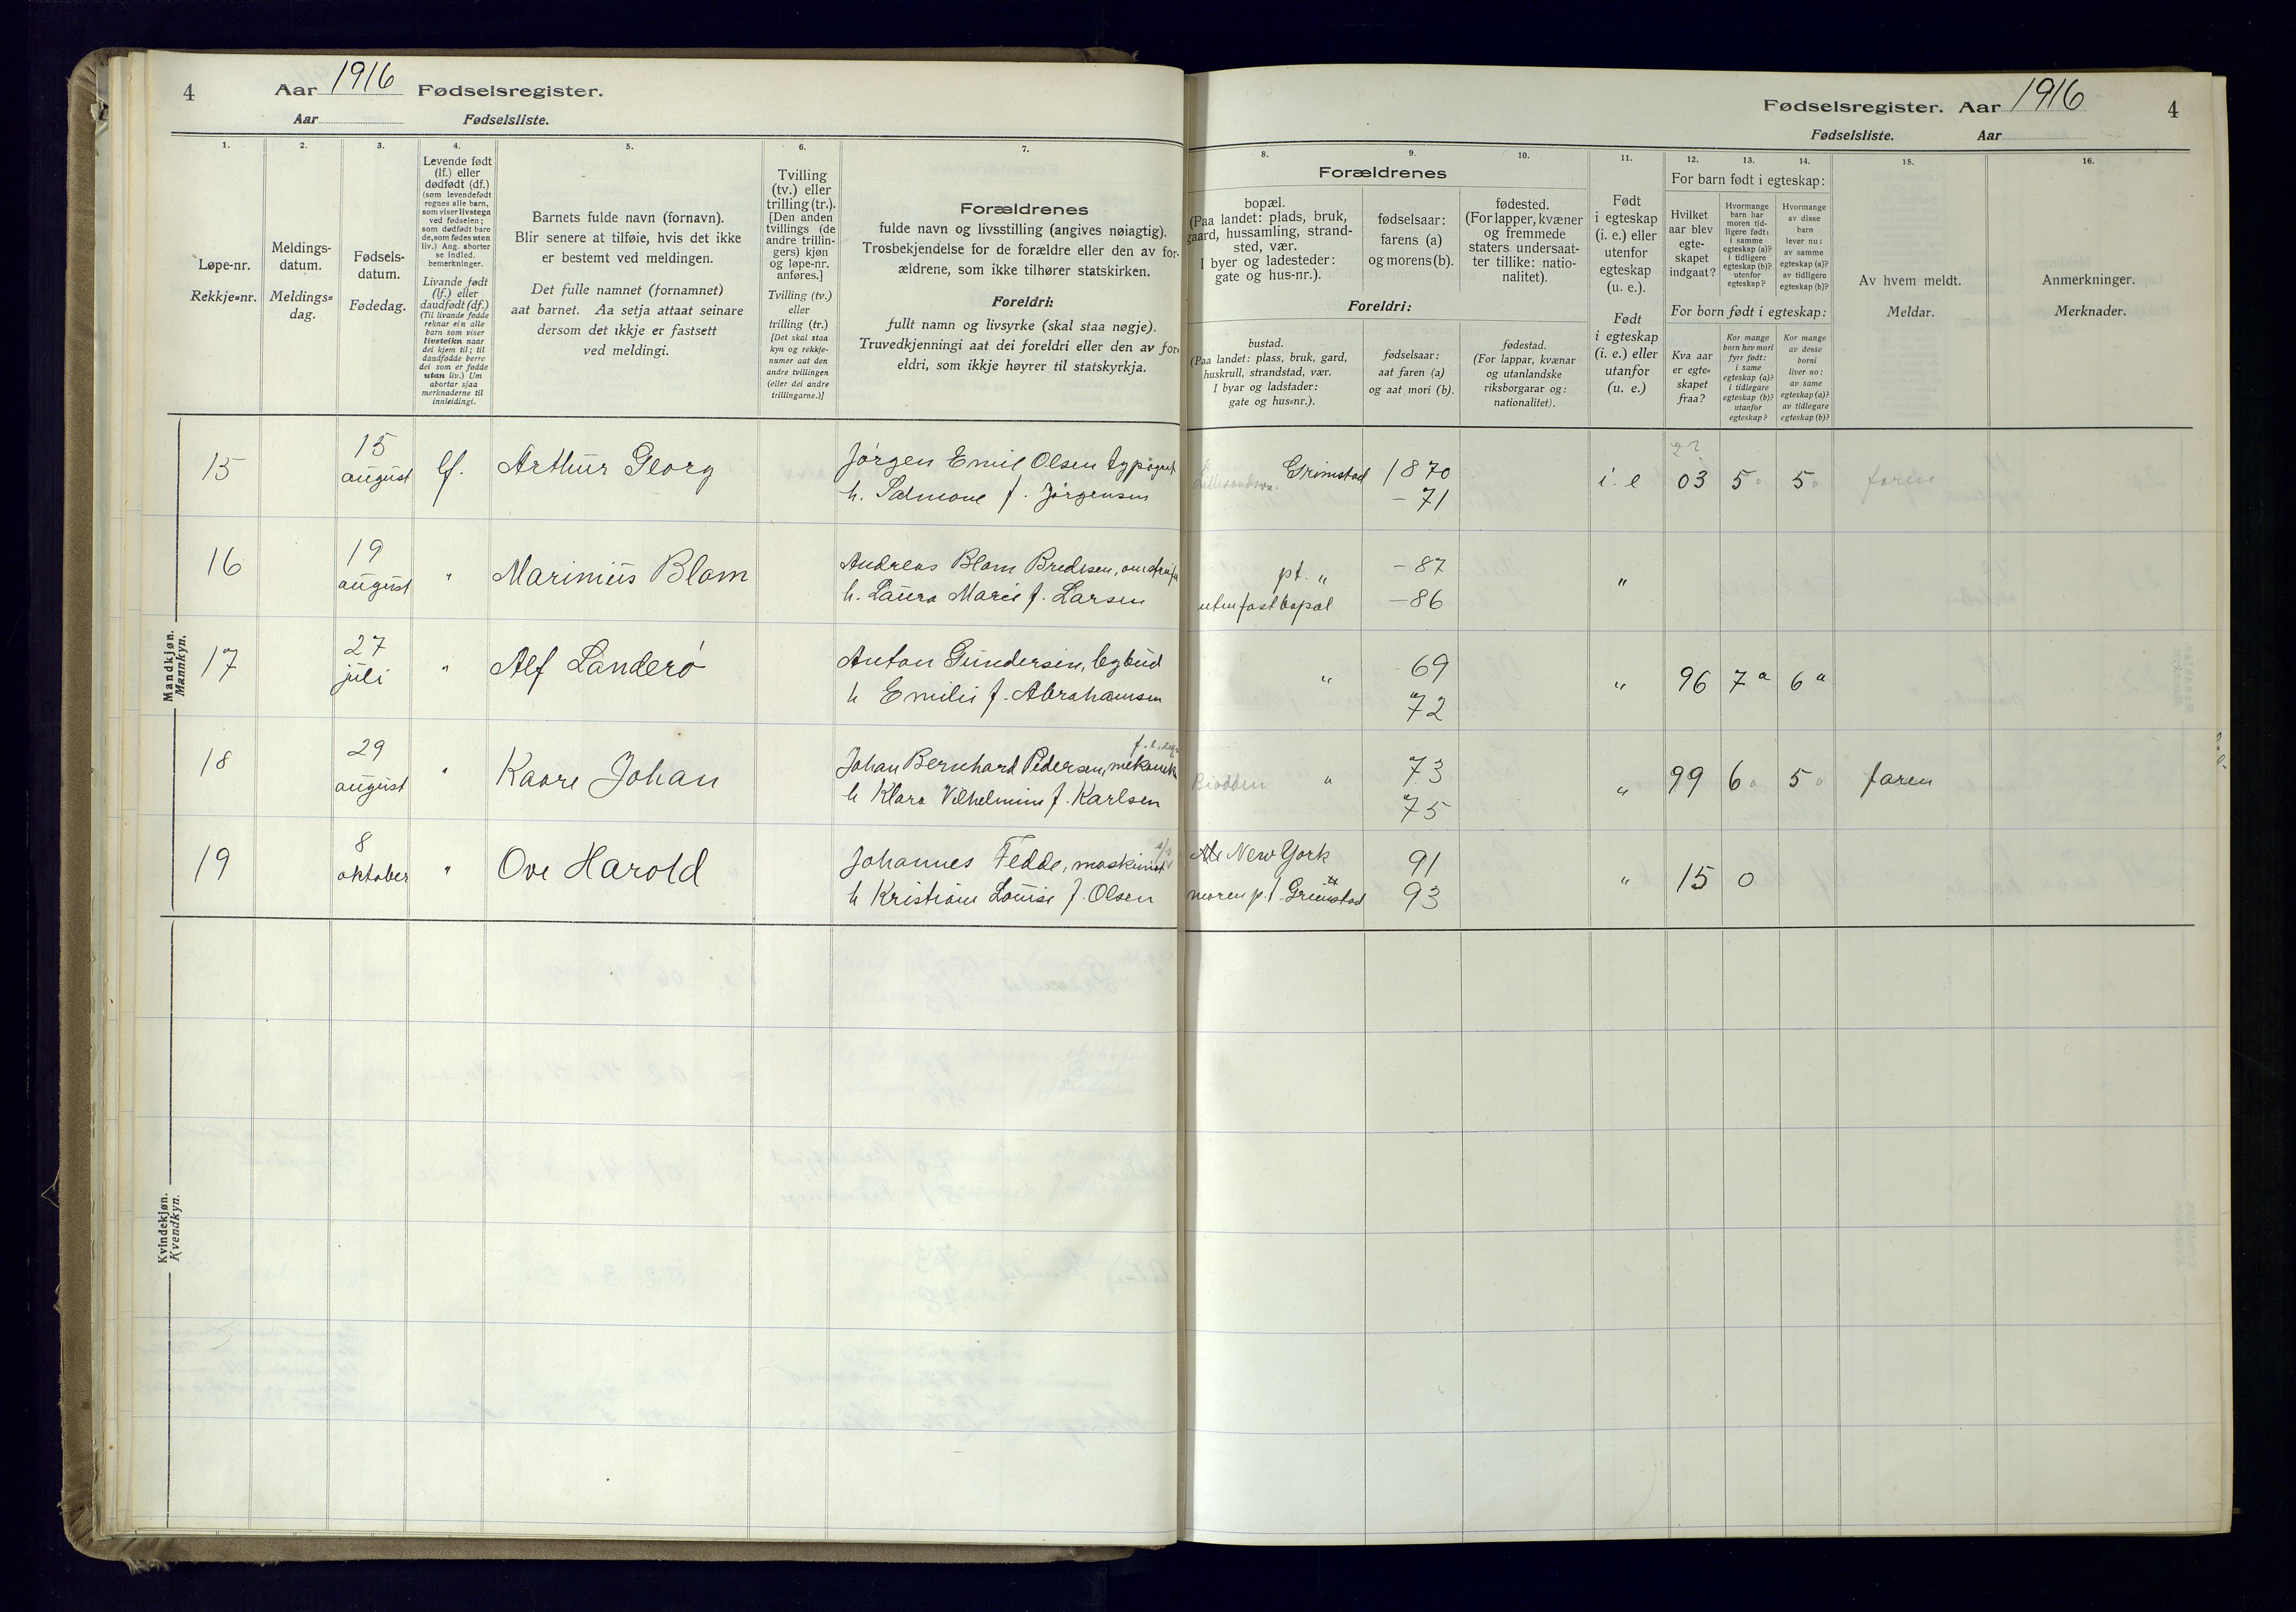 4
Aar 1916 Fødselsregister.
Aar Fødselsliste.
1.
2.
3.
4.
5.
6.
7.
Løpe-nr.
Rekkje=nr.
Meldings-
datum.
Meldings=
dag.
Fødsels-
datum.
Fødedag.
Levende født
(lf.) eller
dødfødt (df.)
(som levendefødt
regnes alle barn,
som viser livstegn
ved fødselen;
som dødfødt bare
de, som fødes uten
liv.) Ang. aborter
se indled.
bemerkninger.
Livande født
(lf.) eller
daudfødt (df.)
(Til livande fødde
reknar ein alle
barn som viser
livsteikn naar
dei kjem til; til
daudfødde berre
dei som er fødde
utan liv.) Um
abortar sjaa
merknaderne til
innleidingi.
Barnets fulde navn (fornavn).
Blir senere at tilføie, hvis det ikke
er bestemt ved meldingen.
Det fulle namnet (fornamnet)
aat barnet. Aa setja attaat seinare
dersom det ikkje er fastsett
ved meldingi.
Tvilling
(tv.) eller
trilling (tr.).
[Den anden
tvillings (de
andre trillin-
gers) kjøn
og løpe-nr.
anføres.]
Tvilling (tv.)
eller
trilling (tr.)
[Det skal staa
kyn og rekkje-
numer aat den
andre tvillingen
(eller dei andre
trillingarne.)]
Forældrenes
fulde navn og livsstilling (angives nøiagtig).
Trosbekjendelse for de forældre eller den av for-
ældrene, som ikke tilhører statskirken.
Foreldri:
fullt namn og livsyrke (skal staa nøgje).
Truvedkjenningi aat dei foreldri eller den av for-
eldri, som ikkje høyrer til statskyrkja.
Mandkjøn.
Mannkyn.
15
15
august
lf.
Arthur Georg
Jørgen Emil Olsen
h. Salmone f. Jørgensen
16
19
august
"
Marinius Blom
Andreas Blom Bredesen,
h. Laura Marie f. Larsen
17
27
juli
"
Alf Landerø
Anton Gundersen, bybud
h Emilie f. Abrahamsen
18
29
august
"
Kaare Johan
Johan Bernhard Pedersen, mekanik
h Klara Vilhelmine f. Karlsen
19
8
oktober
"
Ove Harold
Johannes Fedde, maskinist
h Kristiane Louise f. Olsen
Kvindekjøn.
Kvendkyn.
Fødselsregister. Aar 1916
4
Fødselsliste. Aar
8.
9.
10.
11.
12.
13.
14.
15.
16.
Forældrenes
bopæl.
(Paa landet: plads, bruk,
gaard, hussamling, strand-
sted, vær.
I byer og ladesteder:
gate og hus-nr.).
fødselsaar:
farens (a)
og morens (b).
fødested.
(For lapper, kvæner
og fremmede
staters undersaat-
ter tillike: natio-
nalitet).
Foreldri:
bustad.
(Paa landet: plass, bruk, gard,
huskrull, strandstad, vær.
I byar og ladstader:
gate og hus=nr.).
fødselsaar:
aat faren (a)
og aat mori (b).
fødestad.
(For lappar, kvænar
og utanlandske
riksborgarar og:
nationalitet).
Født
i egteskap
(i. e.) eller
utenfor
egteskap
(u. e.).
Født
i egteskap
(i. e.) eller
utanfor
(u. e.)
For barn født i egteskap:
Hvilket
aar blev
egte-
skapet
indgaat?
Hvormange
barn har
moren tid-
ligere født:
i samme
egteskap (a)?
i tidligere
egteskap (b)?
utenfor
egteskap?
Hvormange
av disse
barn
lever nu:
av samme
egteskap (a)?
av tidligere
egteskap (b)?
For born født i egteskap:
Kva aar
er egte=
skapet
fraa?
Kor mange
born hev mori
fyrr født:
i same
egteskap (a)?
i tidlegare
egteskap (b)?
utanfor
egteskap?
Kor mange
av desse
borni
liver no:
av same
egteskap (a)?
av tidlegare
egteskap (b)?
Av hvem meldt.
Meldar.
Anmerkninger.
Merknader.
Grimstad
1870
- 71
i. e
03
5
5
faren
pt. "
uten fast bopæl
- 87
- 86
"
"
69
72
"
96
7 a
6 a
"
73
75
"
99
6
5
faren
New York
moren p.t. Grimstad
91
93
"
15
0